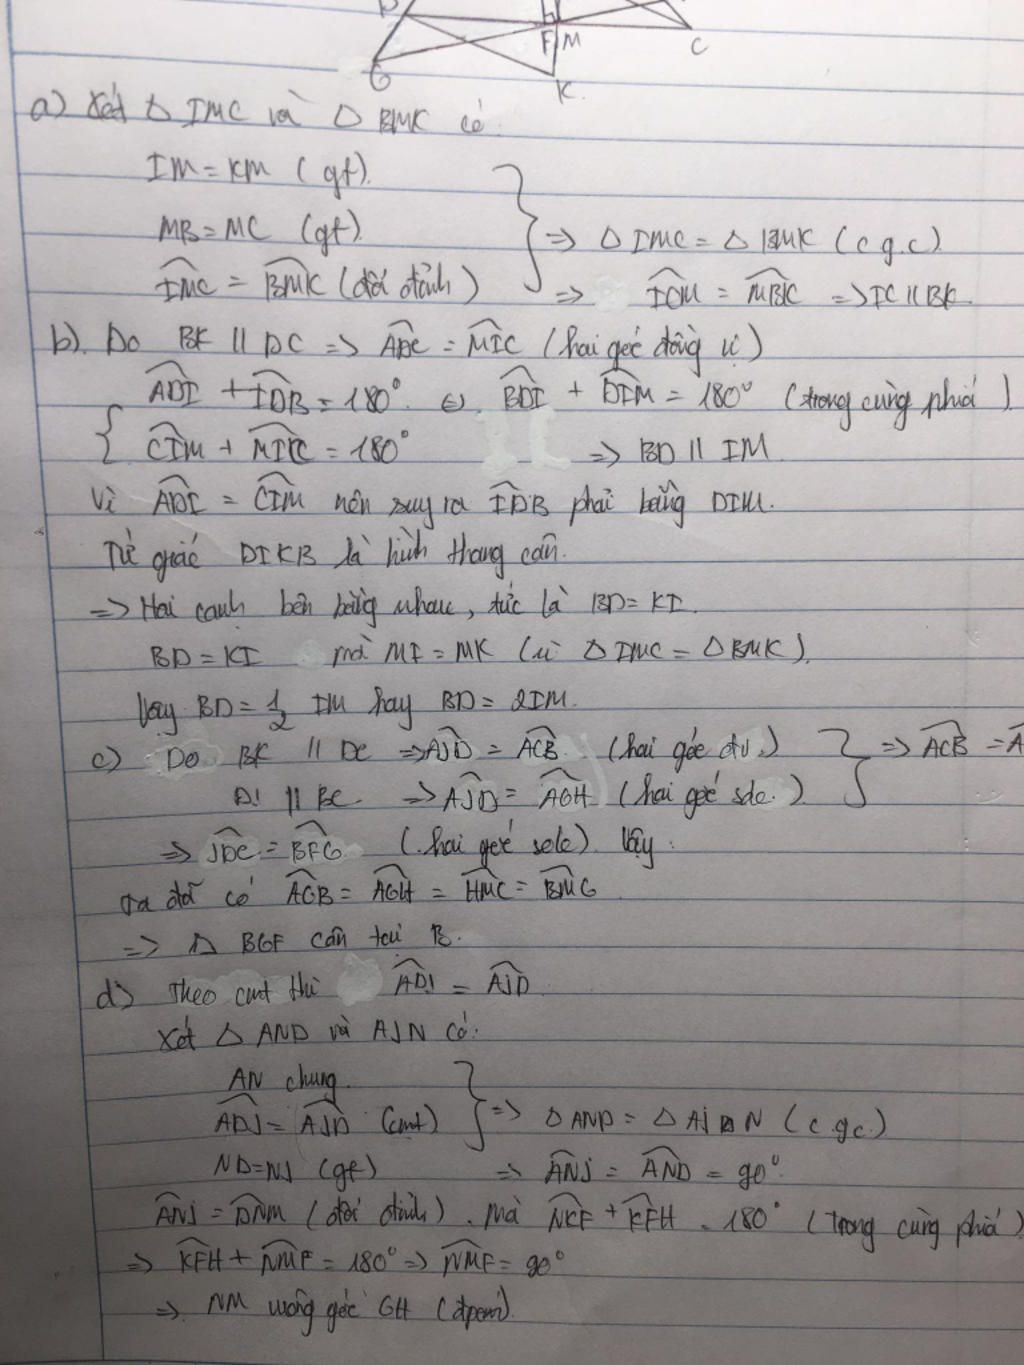 F M C
G K
a) Xét Δ IMC và Δ BMK có:
IM = KM (gt).
MB = MC (gt). => Δ IMC = Δ BMK (c.g.c)
IMC = BMK (đối đỉnh) => ICM = MBK => IC // BK.
b). Do BK // DC => ADC = MIC (hai góc đồng vị)
ADI + IDB = 180° BDI + DIM = 180° (trong cùng phía)
CIM + = 180° => BD // IM
Vì ADI = CIM nên suy ra IDB phải bằng DIM.
Tứ giác DIKB là hình thang cân.
=> Hai cạnh bên bằng nhau, tức là BD = KI.
BD = KI mà MI = MK (vì Δ IMC = Δ BMK).
Vậy BD = 1/2 IM hay BD = 2IM.
c) Do BK // DC => AJD = ACB (hai góc đv.) => ACB =
// BC => AJD = AGH (hai góc slt.)
=> JDC = BFG (hai góc sole) Vậy:
ta đã có AGB = AGH = HMC = BMG
=> Δ BGF cân tại B.
d) Theo cmt thì ADJ = AJD
Xét Δ AND và AJN có:
AN chung.
ADJ = AJD (cmt) => Δ AND = Δ AJN (c.g.c.)
ND = NJ (gt) => ANJ = AND = 90°.
ANJ = DNM (đối đỉnh). Mà NKF + KFH = 180° (trong cùng phía)
=> KFH + NMF = 180° => NMF = 90°
=> NM vuông góc GH (đpcm).